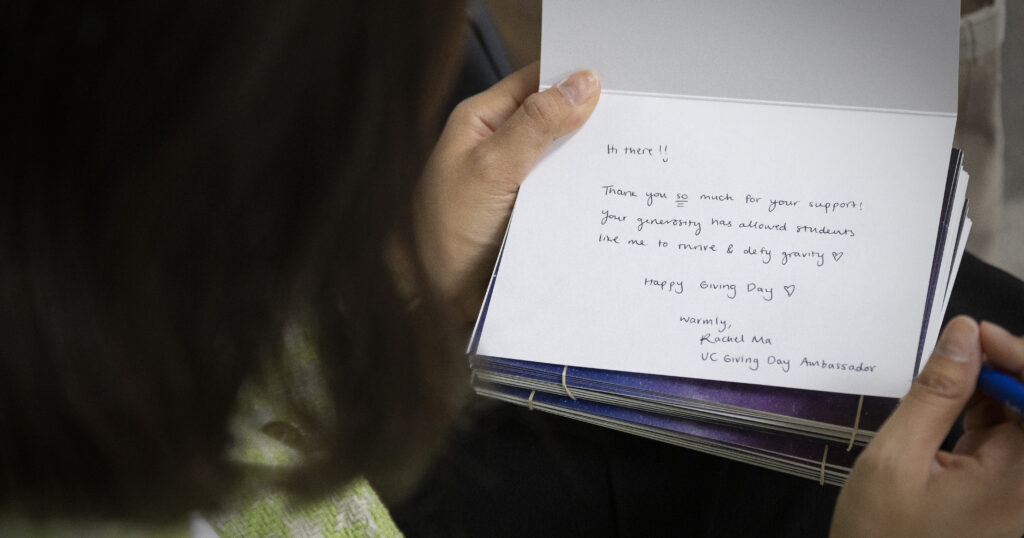 Hi there !!
Thank you so much for your support!
Your generosity has allowed students
like me to thrive & defy gravity ♡
Happy Giving Day ♡
Warmly,
Rachel Ma
UC Giving Day Ambassador